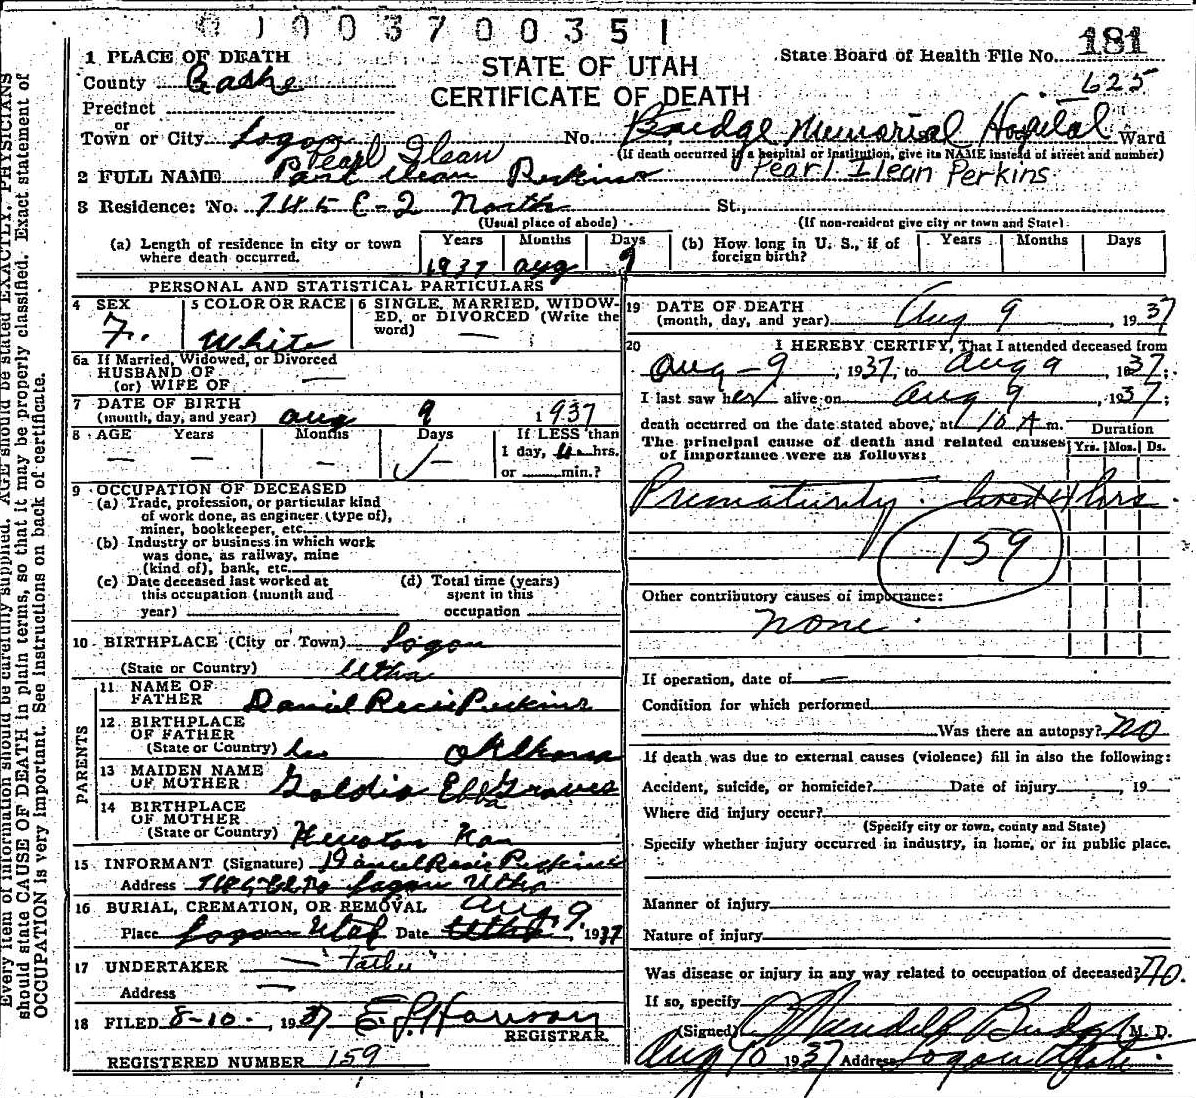 0 1 0 0 3 7 0 0 3 5 1
State Board of Health File No. 181
625
STATE OF UTAH
CERTIFICATE OF DEATH
1 PLACE OF DEATH
County Cashe
Precinct
or
Town or City Logan No. Budge Memorial Hospital Ward
(If death occurred in a hospital or institution, give its NAME instead of street and number)
Pearl Ilean
2 FULL NAME Perkins Pearl Ilean Perkins
3 Residence: No. 745 E-2 North St.,
(Usual place of abode) (If non-resident give city or town and State)
(a) Length of residence in city or town where death occurred. Years 1937 Months Aug Days 9
(b) How long in U. S., if of foreign birth? Years Months Days
PERSONAL AND STATISTICAL PARTICULARS
4 SEX F.
5 COLOR OR RACE White
6 SINGLE, MARRIED, WIDOWED, OR DIVORCED (Write the word) —
6a If Married, Widowed, or Divorced
HUSBAND OF
(or) WIFE OF —
7 DATE OF BIRTH
(month, day, and year) Aug 9 1937
8 AGE Years — Months — Days —
If LESS than
1 day, 4 hrs.
or min.?
9 OCCUPATION OF DECEASED
(a) Trade, profession, or particular kind
of work done, as engineer (type of),
miner, bookkeeper, etc.
(b) Industry or business in which work
was done, as railway, mine
(kind of), bank, etc.
(c) Date deceased last worked at
this occupation (month and
year)
(d) Total time (years)
spent in this
occupation
10 BIRTHPLACE (City or Town) Logan
(State or Country) Utha
PARENTS
11 NAME OF
FATHER Daniel Perkins
12 BIRTHPLACE
OF FATHER
(State or Country)
13 MAIDEN NAME
OF MOTHER Goldia Effa Graves
14 BIRTHPLACE
OF MOTHER
(State or Country) Kan
15 INFORMANT (Signature) Daniel Perkins
Address Logan Utha
16 BURIAL, CREMATION, OR REMOVAL Aug. 9.
Place Logan Utah Date 1937
17 UNDERTAKER — Father
Address —
18 FILED 8-10., 1937
REGISTRAR
REGISTERED NUMBER 159
19 DATE OF DEATH
(month, day, and year) Aug 9, 1937
20 I HEREBY CERTIFY, That I attended deceased from
Aug - 9, 1937, to Aug 9, 1937;
I last saw her alive on Aug 9, 1937;
death occurred on the date stated above, at 10 A m.
The principal cause of death and related causes of importance were as follows:
Duration
Yrs. Mos. Ds.
Prematurity. lived 4 hrs.
159
Other contributory causes of importance:
none.
If operation, date of —
Condition for which performed
Was there an autopsy? No
If death was due to external causes (violence) fill in also the following:
Accident, suicide, or homicide? Date of injury , 19
Where did injury occur?
(Specify city or town, county and State)
Specify whether injury occurred in industry, in home, or in public place.
Manner of injury
Nature of injury
Was disease or injury in any way related to occupation of deceased? No.
If so, specify
(Signed) Budge M. D.
Aug 10 1937 Address Logan
Every item of information should be carefully supplied. AGE should be stated EXACTLY. PHYSICIANS
should state CAUSE OF DEATH in plain terms, so that it may be properly classified. Exact statement of
OCCUPATION is very important. See instructions on back of certificate.